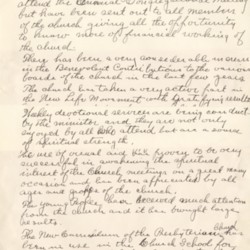 attend the Annual Congregational Meeting
but have been sent out to all members
of the church giving all the opportunity
to know more of financial working of
the church.
There has been a very considerable increase
in the Benevolent Contributions to the various
boards of the church in the last few years
The church has taken a very active part in
the New Life Movement with gratifying results
Weekly devotional services are being conduct
by the minister and they are not only
enjoyed by all who attend but are a source
of spiritual strength.
The use of visual aids has proven to be very
successful in awakening the spiritual
interest of the church meetings on a great many
occasions and has been appreciated by all
ages and groups of the church.
The young people have received much attention
from the church and it has brought large
results.
The New Curriculum of the Presbyterian Church
has been in use in the Church School for